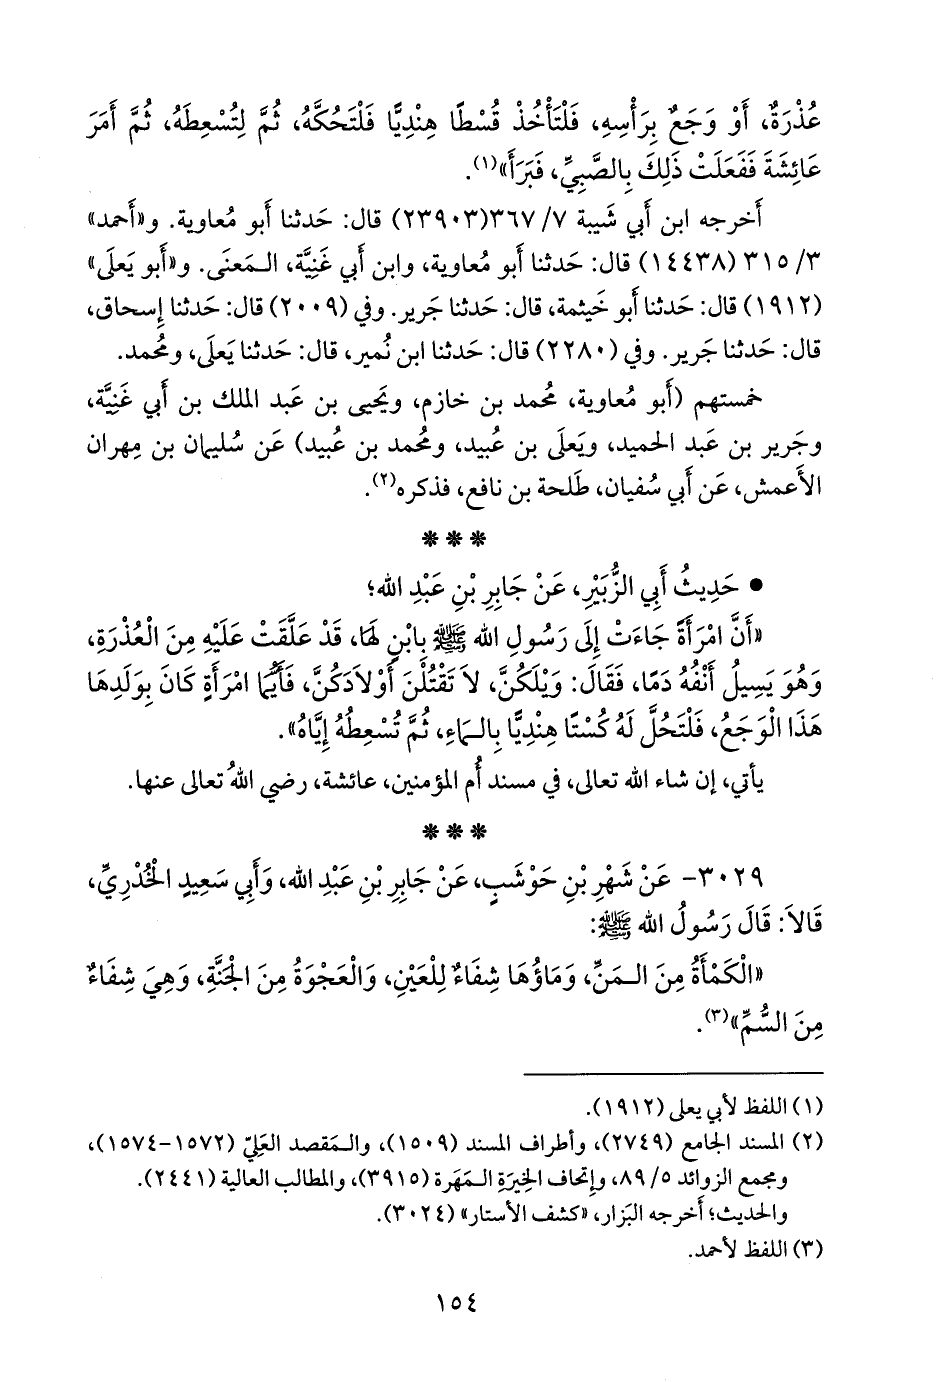 عُذْرَةٌ، أَوْ وَجَعٌ بِرَأْسِهِ، فَلْتَأْخُذْ قُسْطًا هِنْدِيًّا فَلْتَحُكَّهُ، ثُمَّ لِتُسْعِطَهُ، ثُمَّ أَمَرَ
عَائِشَةَ فَفَعَلَتْ ذَلِكَ بِالصَّبِيِّ، فَبَرَأَ»(١).
أَخرجه ابن أَبي شَيبة ٧/ ٣٦٧(٢٣٩٠٣) قال: حَدثنا أَبو مُعاوية. و«أَحمد»
٣/ ٣١٥ (١٤٤٣٨) قال: حَدثنا أَبو مُعاوية، وابن أَبي غَنِيَّة، الـمَعنَى. و«أَبو يَعلَى»
(١٩١٢) قال: حَدثنا أَبو خَيثمة، قال: حَدثنا جَرير. وفي (٢٠٠٩) قال: حَدثنا إِسحاق،
قال: حَدثنا جَرير. وفي (٢٢٨٠) قال: حَدثنا ابن نُمير، قال: حَدثنا يَعلَى، ومُحمد.
خمستهم (أَبو مُعاوية، مُحمد بن خازم، ويَحيى بن عَبد الملك بن أَبي غَنِيَّة،
وجَرير بن عَبد الحميد، ويَعلَى بن عُبيد، ومُحمد بن عُبيد) عَن سُليمان بن مِهران
الأَعمش، عَن أَبي سُفيان، طَلحة بن نافع، فذكره(٢).
***
• حَدِيثُ أَبِي الزُّبَيْرِ، عَنْ جَابِرِ بْنِ عَبْدِ الله؛
«أَنَّ امْرَأَةً جَاءَتْ إِلَى رَسُولِ الله ﷺ بِابْنٍ لَهَا، قَدْ عَلَّقَتْ عَلَيْهِ مِنَ الْعُذْرَةِ،
وَهُوَ يَسِيلُ أَنْفُهُ دَمًا، فَقَالَ: وَيْلَكُنَّ، لاَ تَقْتُلْنَ أَوْلاَدَكُنَّ، فَأَيُّمَا امْرَأَةٍ كَانَ بِوَلَدِهَا
هَذَا الْوَجَعُ، فَلْتَحُلَّ لَهُ كُسْتًا هِنْدِيًّا بِالـمَاءِ، ثُمَّ تُسْعِطُهُ إِيَّاهُ».
يأتي، إن شاء الله تعالى، في مسند أُم المؤمنين، عائشة، رضي اللهُ تعالى عنها.
***
٣٠٢٩- عَنْ شَهْرِ بْنِ حَوْشَبٍ، عَنْ جَابِرِ بْنِ عَبْدِ الله، وَأَبِي سَعِيدٍ الْخُدْرِيِّ،
قَالاَ: قَالَ رَسُولُ الله ﷺ:
«الْكَمْأَةُ مِنَ الـمَنِّ، وَمَاؤُهَا شِفَاءٌ لِلْعَيْنِ، وَالْعَجْوَةُ مِنَ الْجَنَّةِ، وَهِيَ شِفَاءٌ
مِنَ السُّمِّ»(٣).
(١) اللفظ لأبي يعلى (١٩١٢).
(٢) المسند الجامع (٢٧٤٩)، وأطراف المسند (١٥٠٩)، والـمَقصد العَلِيّ (١٥٧٢-١٥٧٤)،
ومجمع الزوائد ٥/ ٨٩، وإتحاف الخِيرَةِ الـمَهَرة (٣٩١٥)، والمطالب العالية (٢٤٤١).
والحديث؛ أخرجه البَزار، «كشف الأستار» (٣٠٢٤).
(٣) اللفظ لأحمد.
١٥٤